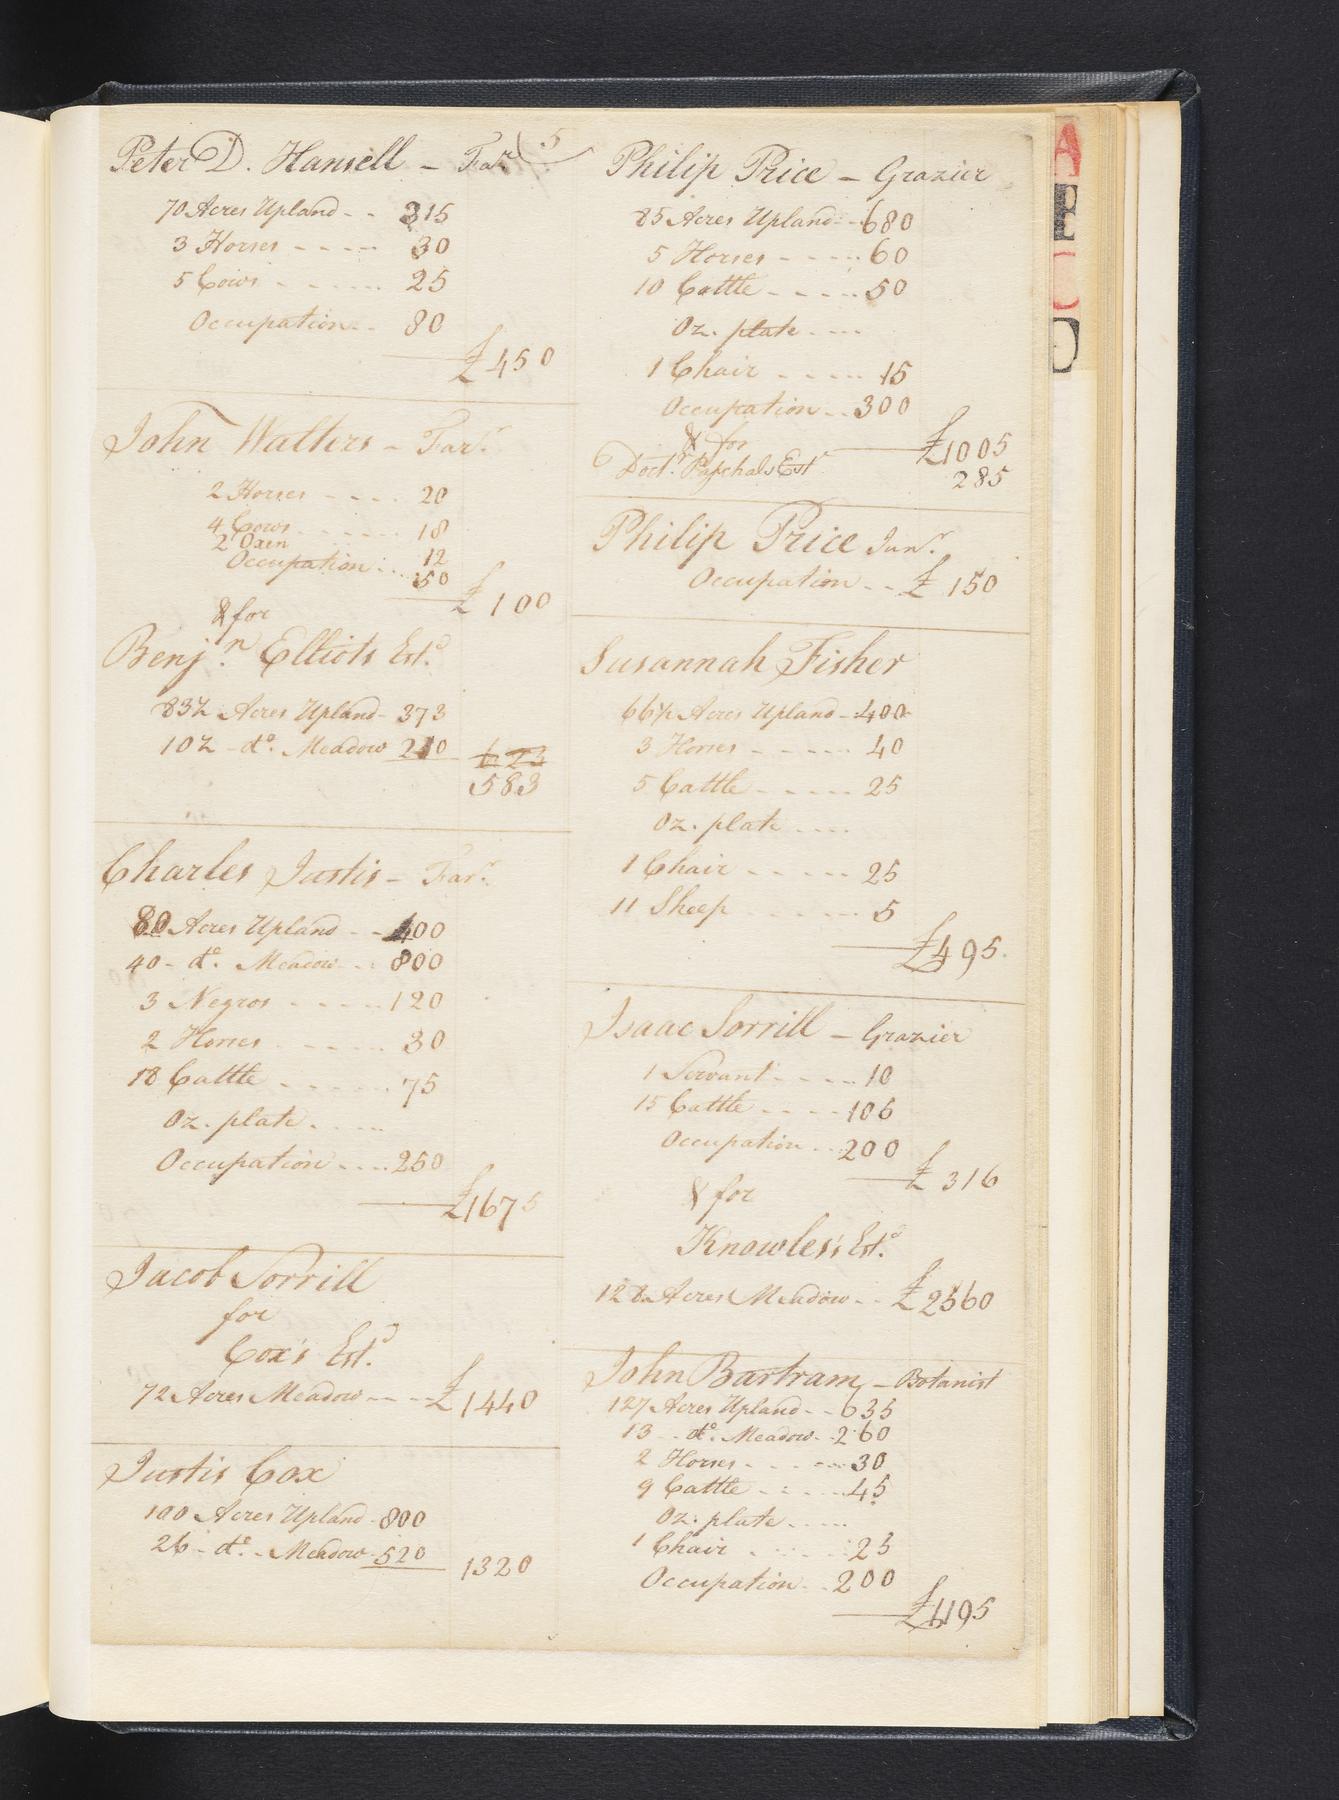 5
Peter D. Hansell - Far.r
70 Acres Upland - - 315
3 Horses - - - - - 30
5 Cows - - - - - - 25
Occupation - - 80
£ 450
John Walters - Far.r
2 Horses - - - - 20
4 Cows - - - - - - 18
2 Oxen
Occupation - - 12
50
£ 100
& for
Benj.n Elliots Est.d
83½ Acres Upland - 373
10½ - do. Meadow 210 623
583
Charles Justis - Far.r
80 Acres Upland - - 400
40 - do. Meadow - - 800
3 Negros - - - - - 120
2 Horses - - - - - 30
18 Cattle - - - - - - 75
Oz. plate - - - -
Occupation - - - - 250
£1675
Jacob Sorrill
for
Cox's Est.d
72 Acres Meadow - - - - £1440
Justis Cox
100 Acres Upland - 800
26 - do. - Meadow - 520 1320
Philip Price - Grazier
85 Acres Upland - - 680
5 Horses - - - - - 60
10 Cattle - - - - - 50
Oz. plate - - - -
1 Chair - - - - - 15
Occupation - - 300
£1005
& for
Doct.r Paschals Est 285
Philip Price Jun.r
Occupation - - £ 150
Susannah Fisher
66½ Acres Upland - - 400
3 Horses - - - - - 40
5 Cattle - - - - - 25
Oz. plate - - - -
1 Chair - - - - - 25
11 Sheep - - - - - - 5
£495.
Isaac Sorrill - Grazier
1 Servant - - - - - 10
15 Cattle - - - - 106
Occupation - - 200
£ 316
& for
Knowles's Est.d
128 Acres Meadow - - £2560
John Bartram - Botanist
127 Acres Upland - - 635
13 - - do. Meadow - - 260
2 Horses - - - - - 30
9 Cattle - - - - - 45
Oz. plate - - - - -
1 Chair - - - - - 25
Occupation - - 200
£1195
A
B
C
D